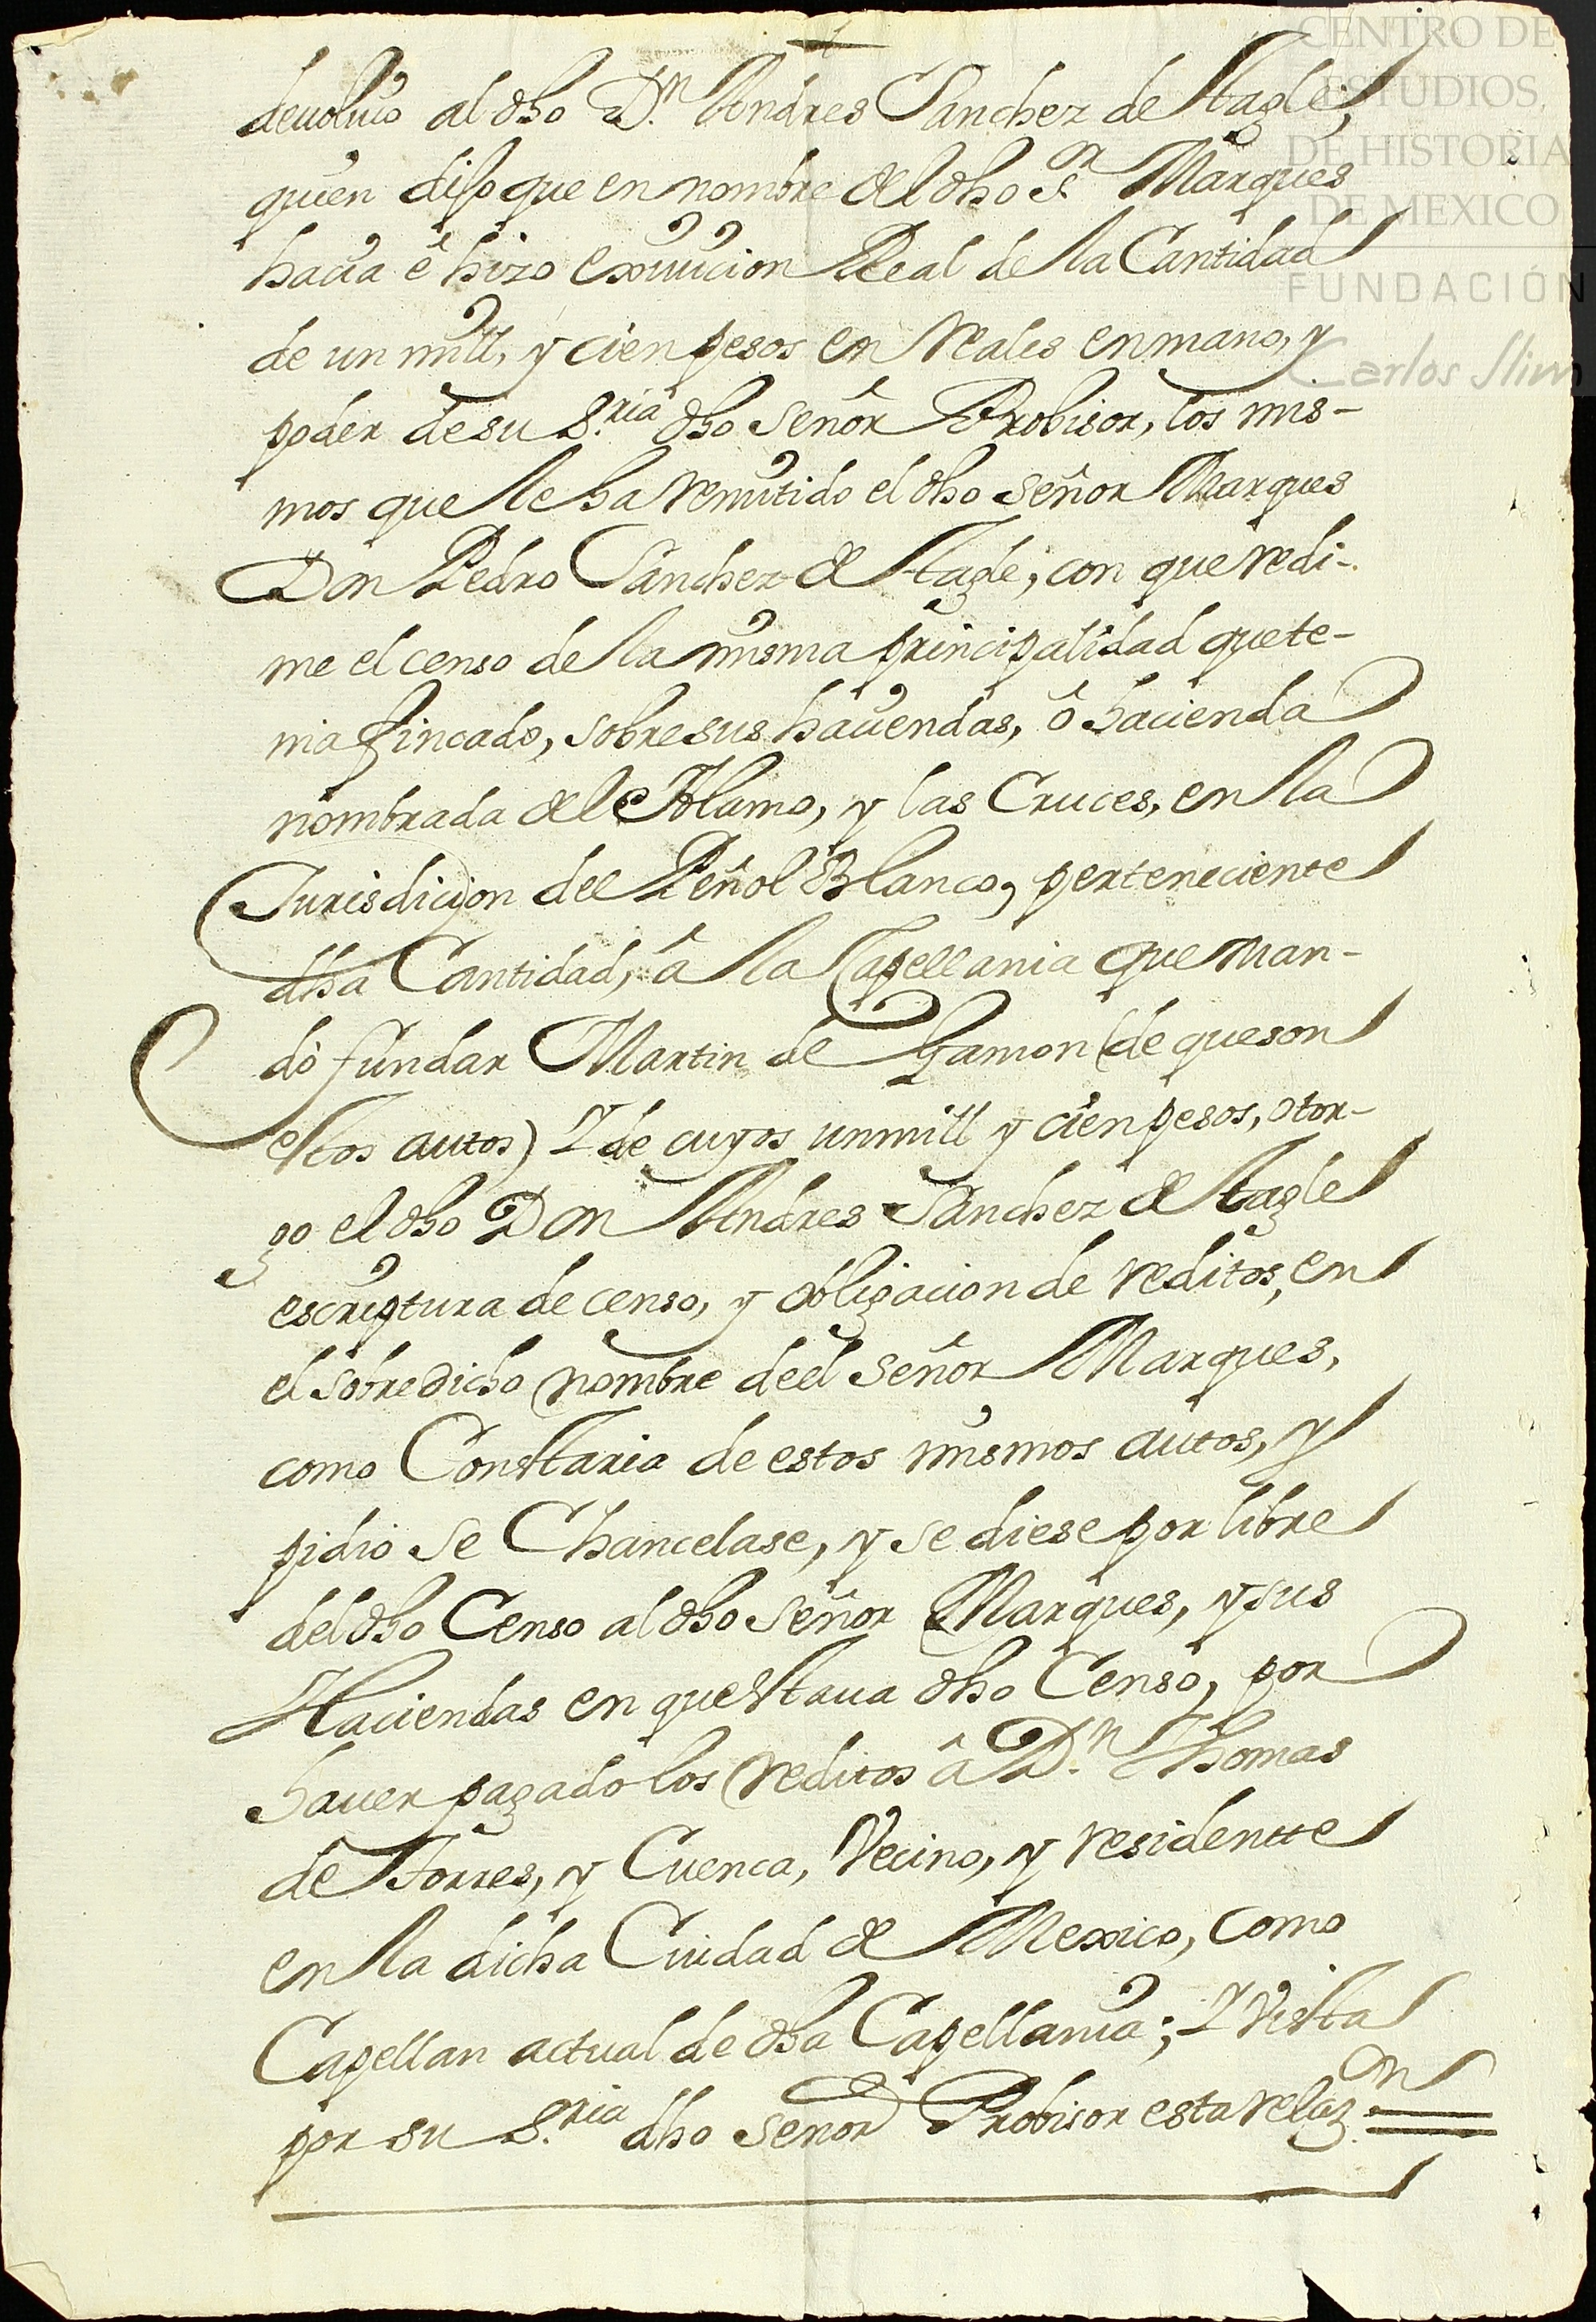 CENTRO DE
ESTUDIOS,
DE HISTORIA
DE MEXICO
FUNDACIÓN
Carlos Slim
deuoluio al dho D.n Andres Sanchez de Tagle,
quien dijo que en nombre del dho S.or Marques
hacia ê hizo exiuicion Real de la Cantidad
de un mill, y cien pesos en reales en mano, y
poder de su S.ria dho Señor Probisor, los mis-
mos que le ha remitido el dho Señor Marques
Don Pedro Sanchez de Tagle, con que redi-
me el censo de la misma principalidad que te-
nia fincado, sobre sus haciendas, ô hacienda
nombrada del Alamo, y las Cruces, en la
Jurisdicion del Peñol Blanco, perteneciente
dha Cantidad, â la Capellania que man-
dò fundar Martin de Gamon (de que son
estos autos) Y de cuyos un mill y cien pesos, otor-
go el dho Don Andres Sanchez de Tagle
escriptura de censo, y obligacion de reditos, en
el sobredicho nombre deel Señor Marques,
como Constaria de estos mismos autos, y
pidio se Chancelase, y se diese por libre
del dho Censo al dho Señor Marques, y sus
Haciendas en que estaua dho Censo, por
hauer pagado los reditos â D.n Thomas
de Torres, y Cuenca, Vecino, y residentte
en la dicha Ciudad de Mexico, como
Capellan actual de dha Capellania; Y Vista
por su S.ria dho Señor Probisor esta relaz.on